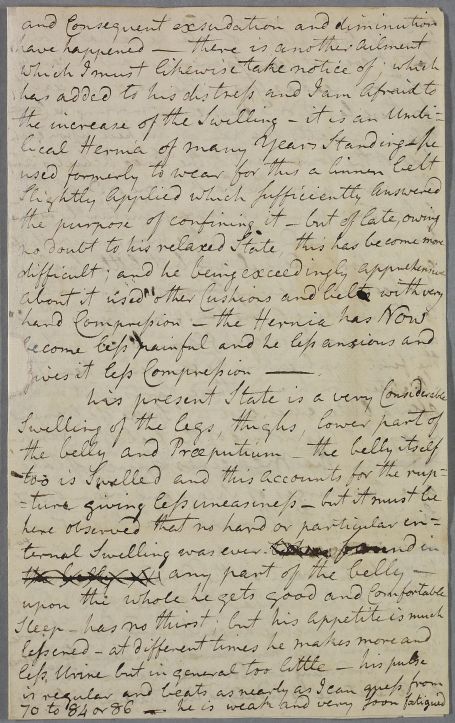 and Consequent exsudation and diminution
have happened — there is another ailment
which I must likewise take notice of which
has added to his distress and I am afraid to
the increase of the Swelling — it is an Umbi-
lical Hernia of many Years Standing — he
used formerly to wear for this a linnen belt
Slightly applied which Sufficiently answered
the purpose of confining it — but of late, owing
no doubt to his relaxed State this has become more
difficult; and he being exceedingly apprehensive
about it used other Cushions and belts with very
hard Compression — the Hernia has Now
become less painful and he less anxious and
gives it less Compression —
his present State is a very Considerable
Swelling of the legs, thighs, lower part of
the belly and Præputium — the belly itself
too is Swelled and this accounts for the rup-
-ture giving less uneasiness — but it must be
here observed that no hard or particular in-
-ternal Swelling was ever found in
any part of the belly —
upon the whole he gets good and Comfortable
Sleep — has no thirst, but his appetite is much
lessened — at different times he makes more and
less Urine but in general too little — his pulse
is regular and beats as nearly as I can guess from
70 to 84 or 86 — he is weak and very soon fatigued